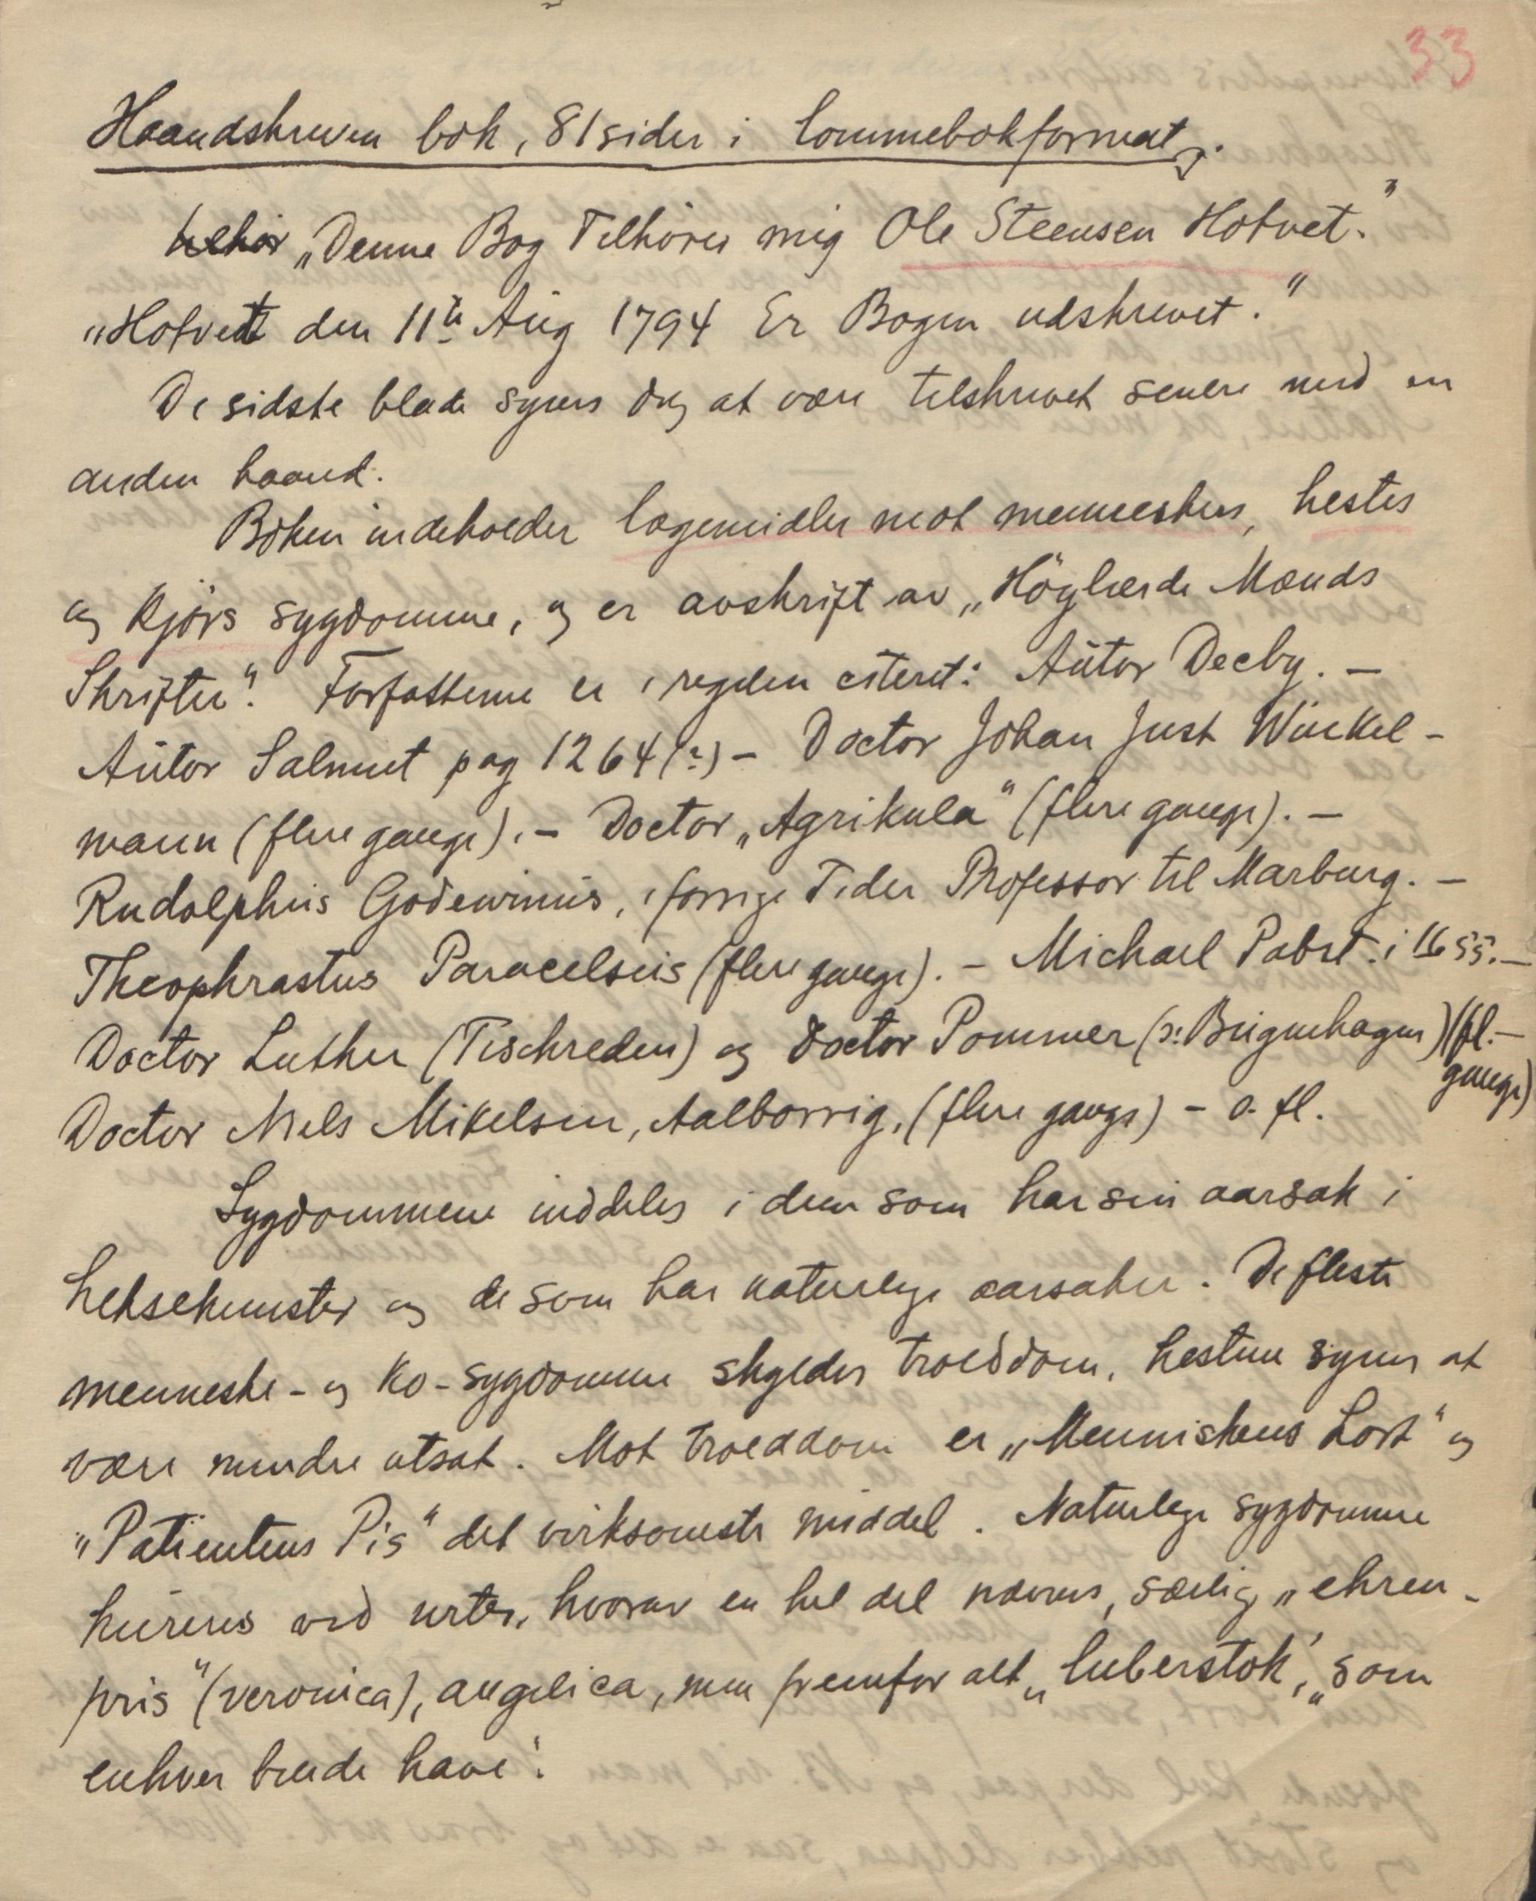 33
Haandskreven bok, 81 sider i lommebokformat.
„Denne Bog Tilhörer mig Ole Steensen Hotvet."
„Hotvedt den 11te Aug 1794 Er Bogen udskrevet."
De sidste blade synes dog at være tilskrevet senere med en
anden haand.
Boken indeholder lægemidler mot menneskers, hestes
og kjørs sygdomme, og er avskrift av „Höglærde Mænds
Skrifter". Forfatterne er i reglen citeret: Aütor Decby. —
Aütor Salmut pag 1264 (?) — Doctor Johan Just Winkel-
mann (flere gange). — Doctor „Agrikula" (flere gange). —
Rudolphüs Godewinüs, i forrige Tider Professor til Marburg. —
Theophrastus Paracelsüs (flere gange). — Michael Pabst i 1655. —
Doctor Luther (Tischreden) og Doctor Pommer (ɔ: Bügenhagen) (fl. —
gange)
Doctor Niels Mikelsen, Aalborrig, (flere gange) — o. fl.
Sygdommene inddeles i dem som har sin aarsak i
heksekunster og de som har naturlige aarsaker. De fleste
menneske- og ko-sygdomme skyldes trolddom, hestene synes at
være mindre utsat. Mot trolddom er „Menniskens Lort" og
„Patientens Pis" det virksomste middel. Naturlige sygdomme
kureres ved urter, hvorav en hel del nævnes, særlig „ehren-
pris" (veronica), angelica, men fremfor alt „luberstok", „som
enhver burde have".